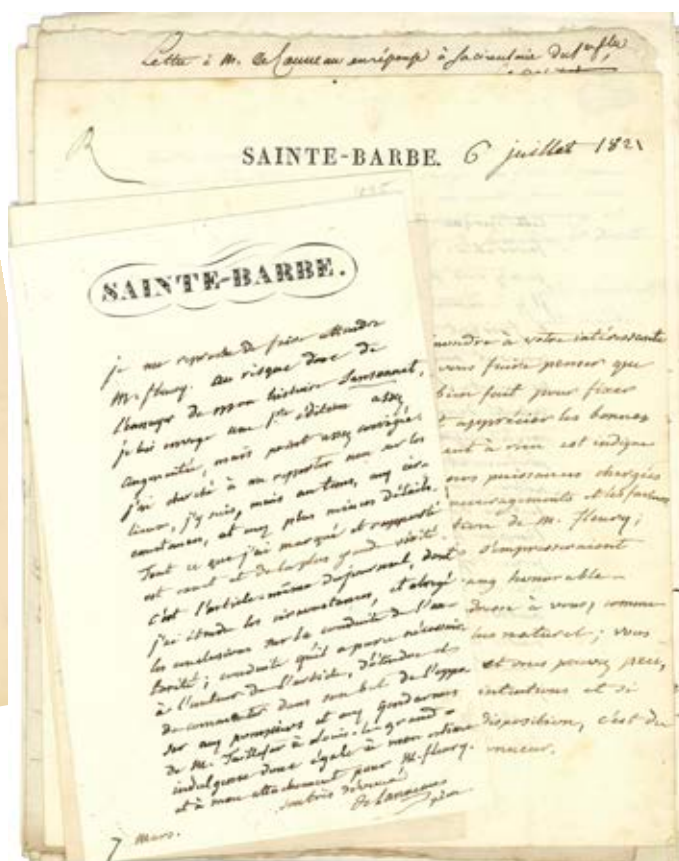 Lettre à M. de Lanneau en réponse à sa circulaire du
SAINTE-BARBE. 6 juillet 1821
SAINTE-BARBE.
je me reproche de faire attendre
M. fleury. Au risque donc de
l'ennuyer de mon histoire Sansonnet,
je lui envoye une 1re édition assez
augmentée, mais point assez corrigée.
j'ai cherché à me reporter non sur les
lieux, j'y suis, mais au tems, aux cir-
constances, et aux plus minces détails.
Tout ce que j'ai marqué et rapporté
est exact et de la plus grande vérité.
C'est l'article même du journal, dont
j'ai étendu les circonstances, et abrégé
les conclusions sur la conduite de l'au-
torité; conduite qu'il a paru nécessaire
à l'auteur de l'article, d'étendre et
de commenter dans son but de l'oppo
ser aux pompiers et aux gendarmes
de M. Taillefer à Louis-le-grand
indulgence donc égale à mon estime
et à mon attachement pour M. fleury.
7 Mars.
répondre à votre intéressante
vous faire penser que
bien fait pour fixer
apprécier les bonnes
à rien est indigne
nos puissances chargées
encouragements et les faveurs
de M. fleury;
s'empresseraient
rang honorable
adresse à vous, comme
plus naturel; vous
et vous pouvez peu,
intentions et si
disposition, c'est du